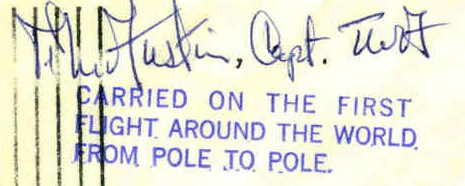 Austin, Capt. TWA
CARRIED ON THE FIRST
FLIGHT AROUND THE WORLD
FROM POLE TO POLE.